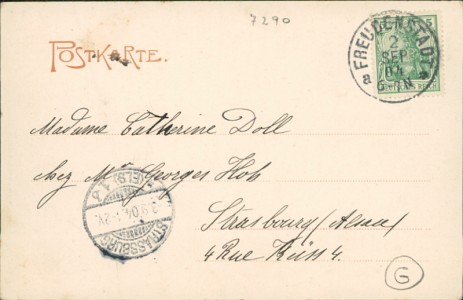 7290
POSTKARTE.
5
FREUDENSTADT
2
SEP
04
6-7N
a
Madame Catherine Doll
chez Mr Georges Hoh
Strasbourg (Alsace)
4 Rue Küss 4.
STRASSBURG
(ELS.) 4.b
3.9.04.
G